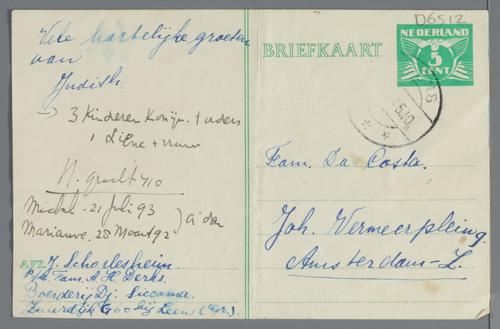 Vele hartelijke groeten
van
Judith.
→ 3 Kinderen Konijn. + ouders
Michel. 21 Juli 93
Marianne. 25 Maart 92
AFZ. J. Schorlesheim
p/a Fam. A. H. Derks.
Boerderij Dj. Siccama.
Zuurdijk Goo bij Leens (Gr.).
D6512
BRIEFKAART
NEDERLAND
5
CENT
Fam. Da Costa.
Joh. Vermeerplein 9.
Amsterdam-Z.